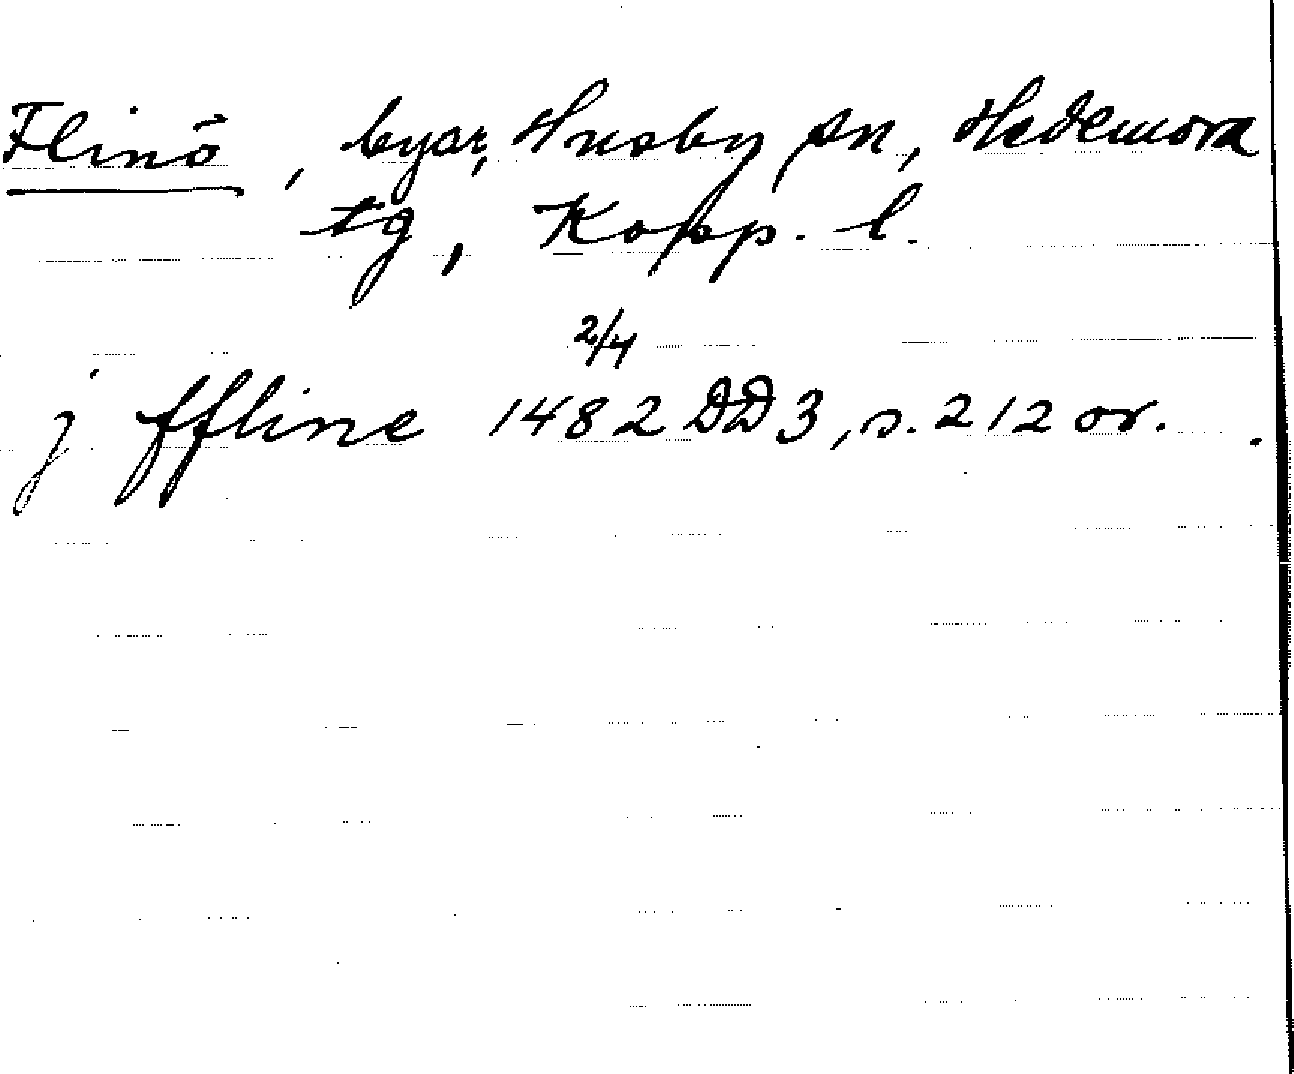 Flinö, byar, Husby sn, Hedemora
tg, Kopp. l.
2/4
j ffline 1482 DD 3, s. 212 or.